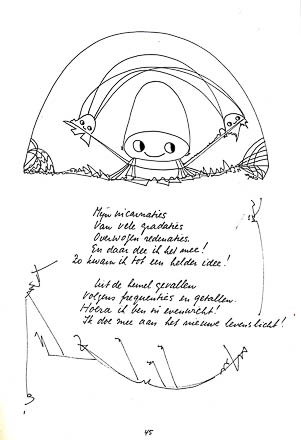 Mijn incarnaties
Van vele gradaties
Overwogen redenaties.
En daar dee ik het mee!
Zo kwam ik tot een helder idee!
Uit de hemel gevallen
Volgens frequenties en getallen.
Hoera ik ben in evenwicht!
Ik doe mee aan het nieuwe levenslicht!
45